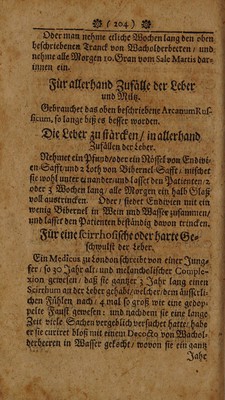 (204)
Oder man nehme etliche Wochen lang den oben
beschriebenen Tranck von Wacholderbeeren / und
nehme alle Morgen 10. Gran vom Sale Martis dar-
innen ein.
Für allerhand Zufälle der Leber
und Miltz.
Gebrauchet das oben beschriebene Arcanum Rus-
ticum, so lange biß es besser worden.
Die Leber zu stärcken / in allerhand
Zufällen der Leber.
Nehmet ein Pfund / oder ein Nössel von Endivi-
en-Safft und 2 Loth von Bibernel-Safft / mischet
sie wohl unter einander / und lasset den Patienten / 2
oder 3 Wochen lang / alle Morgen ein halb Glaß
voll austrincken. Oder / siedet Endivien mit ein
wenig Bibernel in Wein und Wasser zusammen /
und lasset den Patienten beständig davon trincken.
Für eine scirrhosische oder harte Ge-
schwulst der Leber.
Ein Medicus zu London schreibt von einer Jung-
fer / so 30 Jahr alt / und melancholischer Comple-
xion gewesen / daß sie gantzer 3 Jahr lang einen
Scirrhum an der Leber gehabt / welcher / dem äusserli-
chen Fühlen nach / 4 mal so groß wie eine gedop-
pelte Faust gewesen: und nachdem sie eine lange
Zeit viele Sachen vergeblich versuchet hatte; habe
er sie curiret bloß mit einem Decocto von Wachol-
derbeeren in Wasser gekocht / wovon sie ein gantz
Jahr